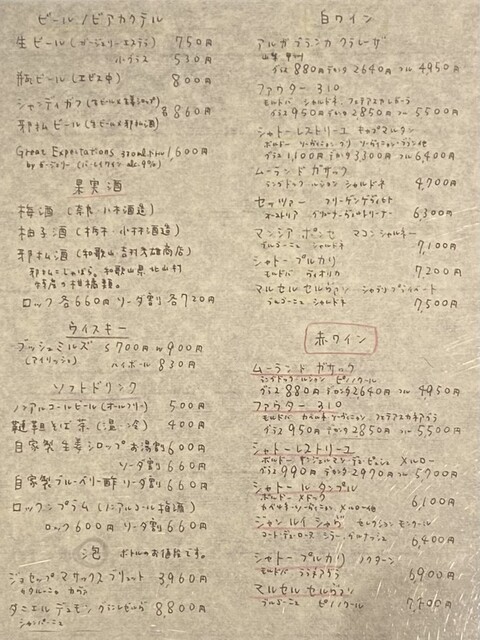 ビール / ビアカクテル
生ビール (ガージェリーエステラ) 750円
小グラス 530円
瓶ビール (エビス中) 800円
シャンディガフ (生ビール×生姜シロップ)
各860円
邪払ビール (生ビール×邪払酒)
Great Expectations 330mlボトル 1,600円
by ガージェリー (バーレイワイン alc.9%)
果実酒
梅酒 (奈良・八木酒造)
柚子酒 (栃木・小林酒造)
邪払酒 (和歌山・吉村秀雄商店)
邪払=じゃばら。和歌山県北山村
特産の柑橘類。
ロック 各660円 ソーダ割 各720円
ウイスキー
ブッシュミルズ S 700円 W 900円
(アイリッシュ) ハイボール 830円
ソフトドリンク
ノンアルコールビール (オールフリー) 500円
韃靼そば茶 (温・冷) 400円
自家製 生姜シロップ お湯割 600円
ソーダ割 660円
自家製ブルーベリー酢 ソーダ割 660円
ロックンプラム (ノンアルコール梅酒)
ロック 600円 ソーダ割 660円
泡 ボトルのお値段です。
ジョセップ マサックス ブリュット 3,960円
カタルーニャ カヴァ
ダニエル デュモン グランレゼルヴ 8,800円
シャンパーニュ
白ワイン
アルガブランカ クラレーザ
山梨 甲州
グラス 880円 デカンタ 2640円 フル 4950円
ファウター 310
モルドバ シャルドネ フェテアスカレガーラ
グラス 950円 デカンタ 2850円 フル 5500円
シャトーレストリーユ キャップマルタン
ボルドー ソーヴィニヨンブラン ソーヴィニヨングリ他
グラス 1,100円 デカンタ 3300円 フル 6,400円
ムーランド ガサック
ラングドックルーション シャルドネ 4,700円
セッツァー フリーゲンゲヴィヒト
オーストリア グリューナーヴェルトリーナー 6,300円
マンシア ポンセ マコンシャルネー
ブルゴーニュ シャルドネ 7,100円
シャトー プルカリ
モルドバ ヴィオリカ 7,200円
マルセル セルヴァン シャブリプライベート
ブルゴーニュ シャルドネ 7,500円
赤ワイン
ムーランド ガサック
ラングドックルーション ピノノワール
グラス 880円 デカンタ 2640円 フル 4950円
ファウター 310
モルドバ カベルネソーヴィニヨン フェテアスカネアグラ
グラス 950円 デカンタ 2850円 フル 5500円
シャトーレストリーユ
ボルドー メルロー
グラス 990円 デカンタ 2970円 フル 5700円
シャトー ル タンプル
ボルドー メドック 6,100円
カベルネソーヴィニヨン、メルロー他
ジャン ルイ シャヴ セレクション モンクール
コート・デュ・ローヌ シラー グルナッシュ 6,400円
シャトー プルカリ ノクターン
モルドバ ララネアグラ 6,900円
マルセル セルヴァン
ブルゴーニュ ピノノワール 7,200円